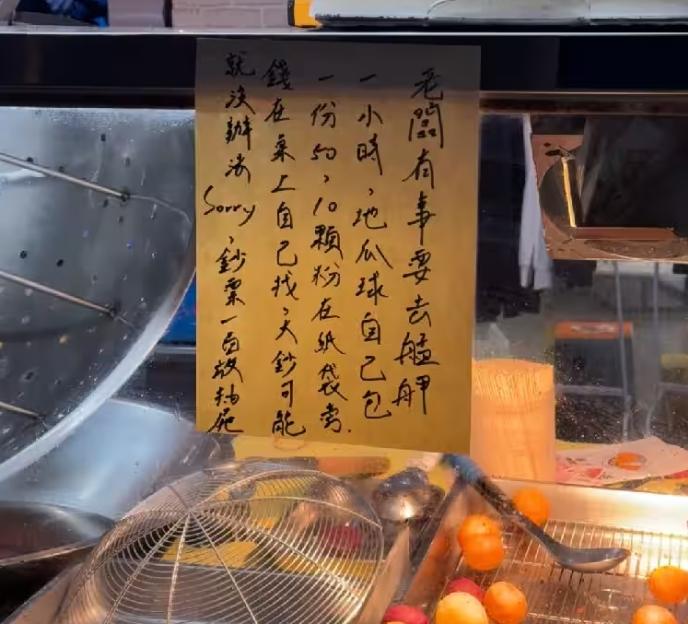 老闆有事要去艋舺
一小時,地瓜球自己包
一份50,10顆粉在紙袋旁.
錢在桌上自己找,大鈔可能
就沒辦法Sorry,鈔票一百放抽屜